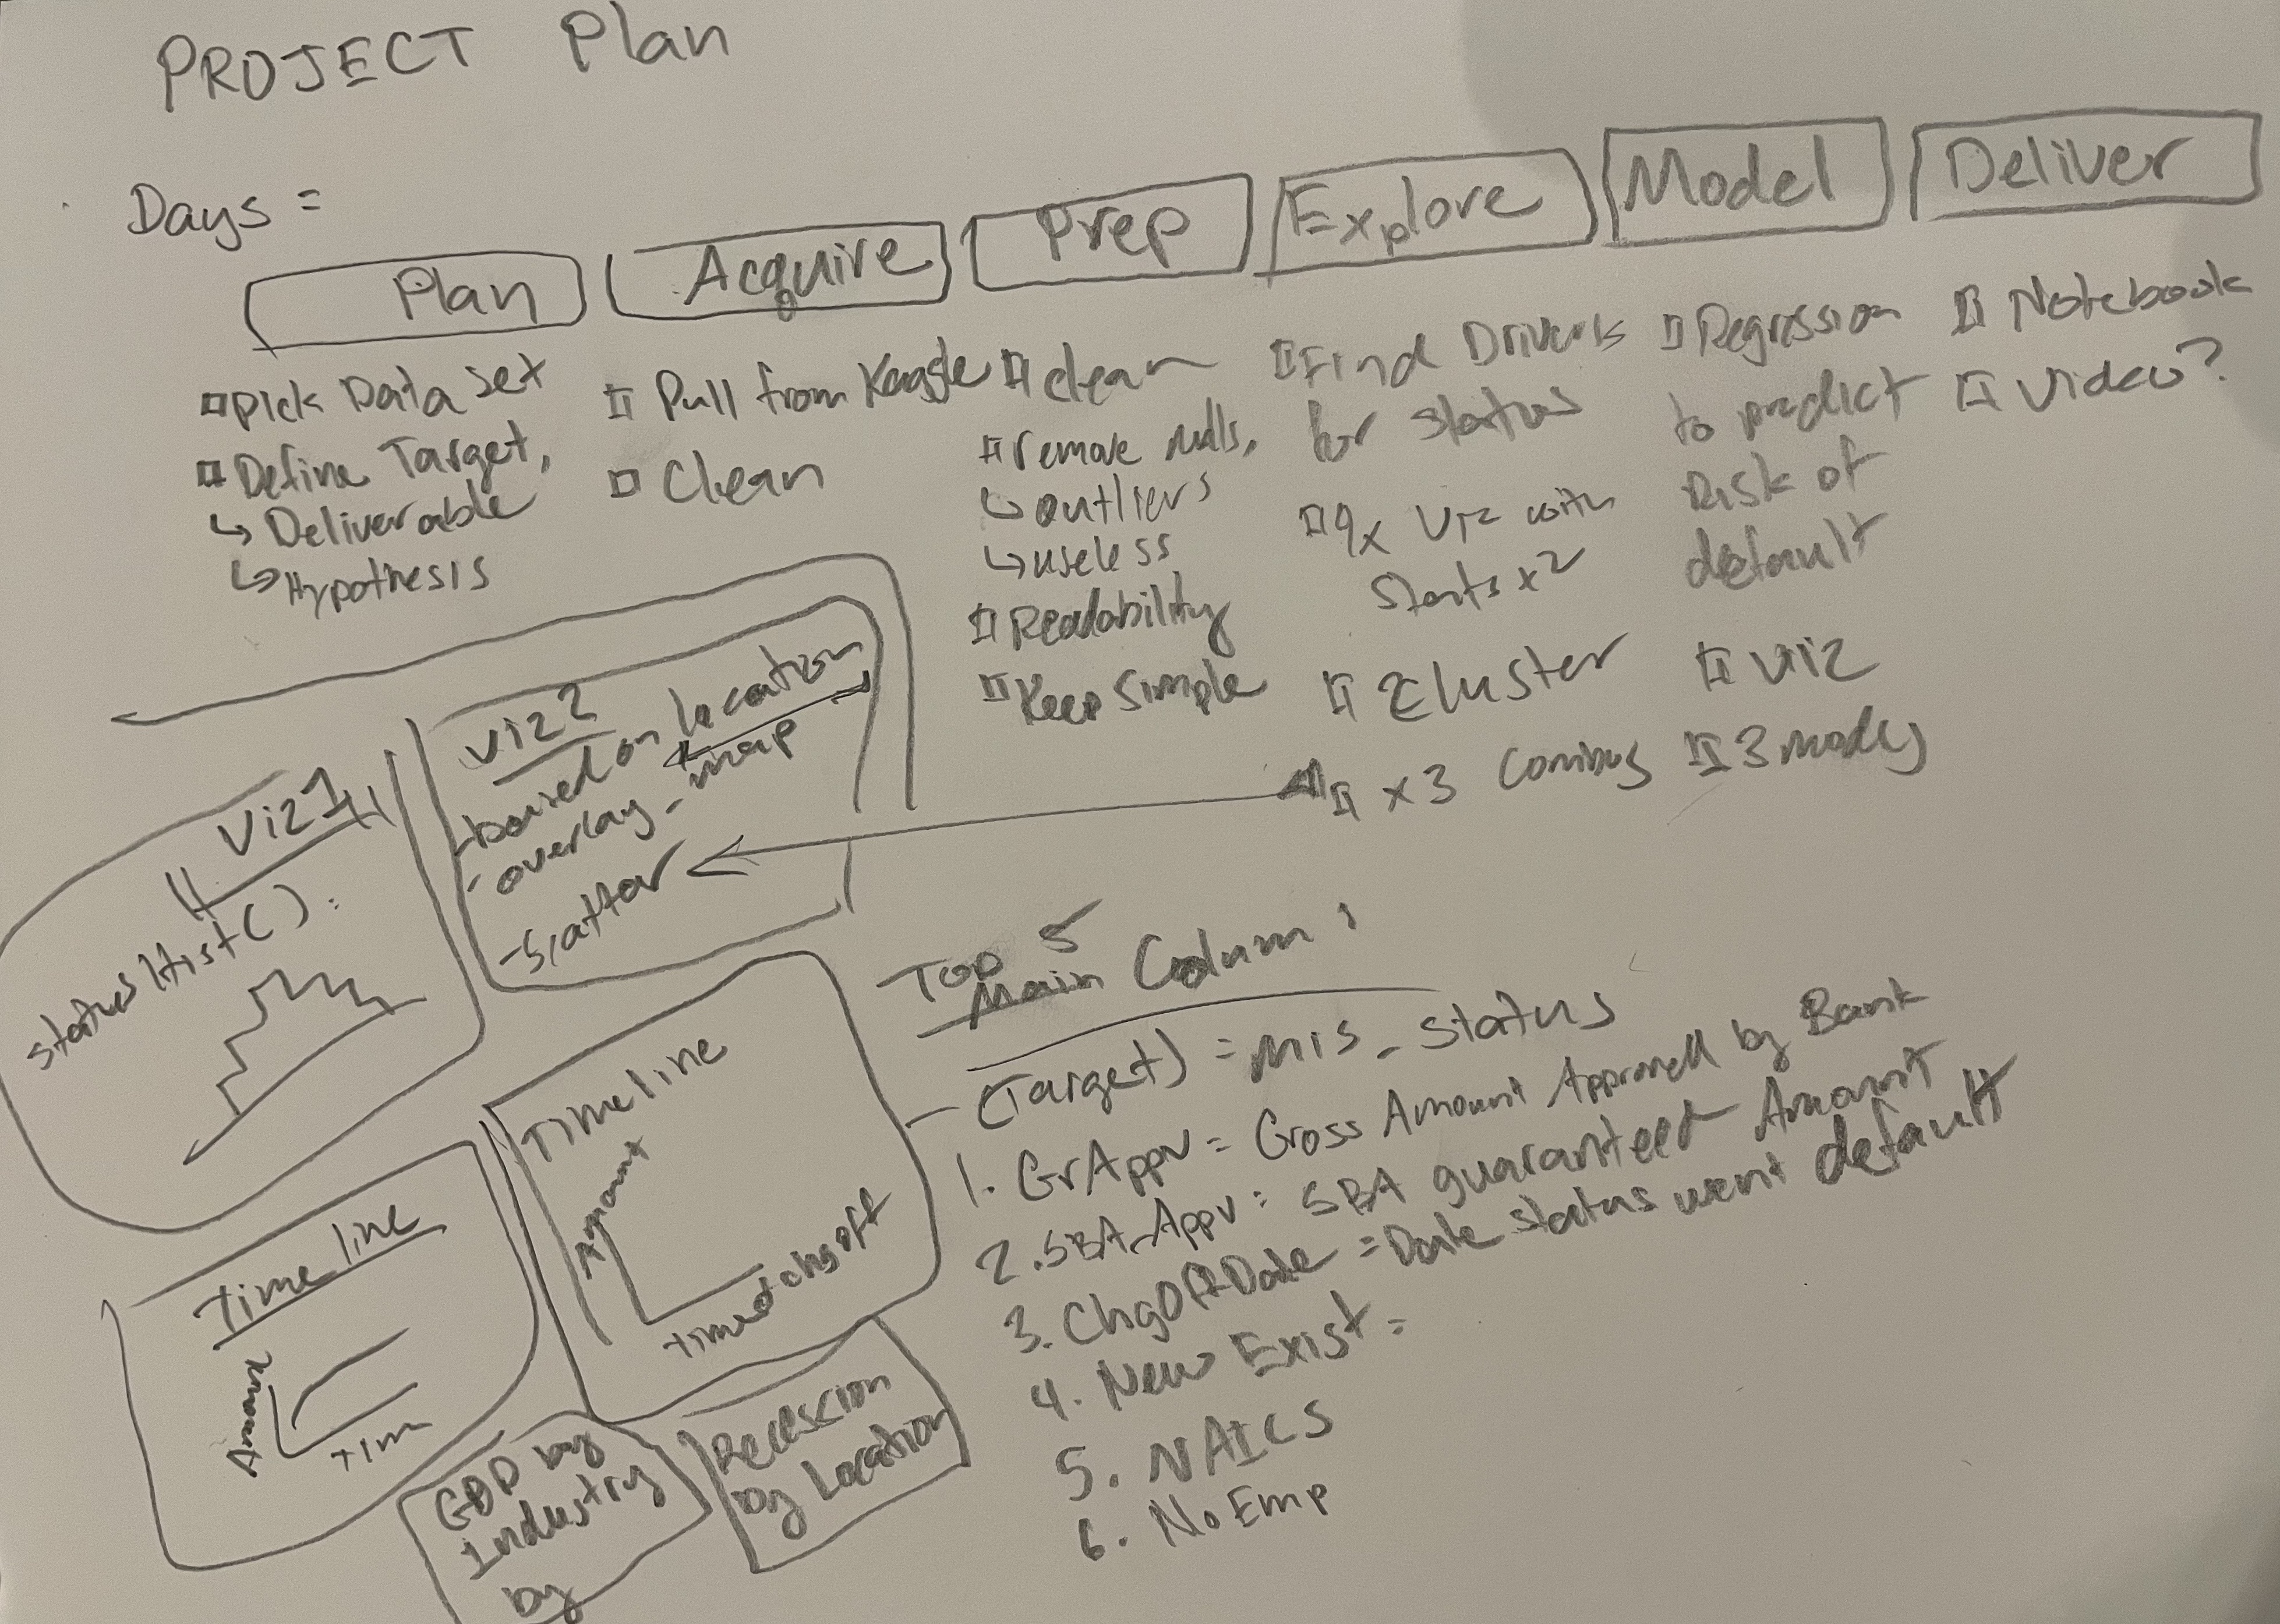 PROJECT Plan
Days =
Plan
Acquire
Prep
Explore
Model
Deliver
Pick Data Set
Define Target,
↳ Deliverable
↳ Hypothesis
Pull from Kaggle
Clean
clean
remove nulls,
↳ outliers
↳ useless
Readability
Keep Simple
Find Drivers
for status
Viz with
x2
Cluster
x3 combos
Regression
to predict
Risk of
default
Viz
3 models
Notebook
Video?
Viz 1
status Hist():
Viz 2
- based on location
- overlay - map
- Scatter
Timeline
Amount
Time
Timeline
Amount
chgoff
GDP by
Industry
by
Recession
by Location
Top 5
Main Column:
(Target) = MIS_Status
1. GrAppv = Gross Amount Approved by Bank
2. SBA_Appv = SBA guaranteed Amount
3. ChgOffDate = Date status went default
4. New Exist =
5. NAICS
6. NoEmp